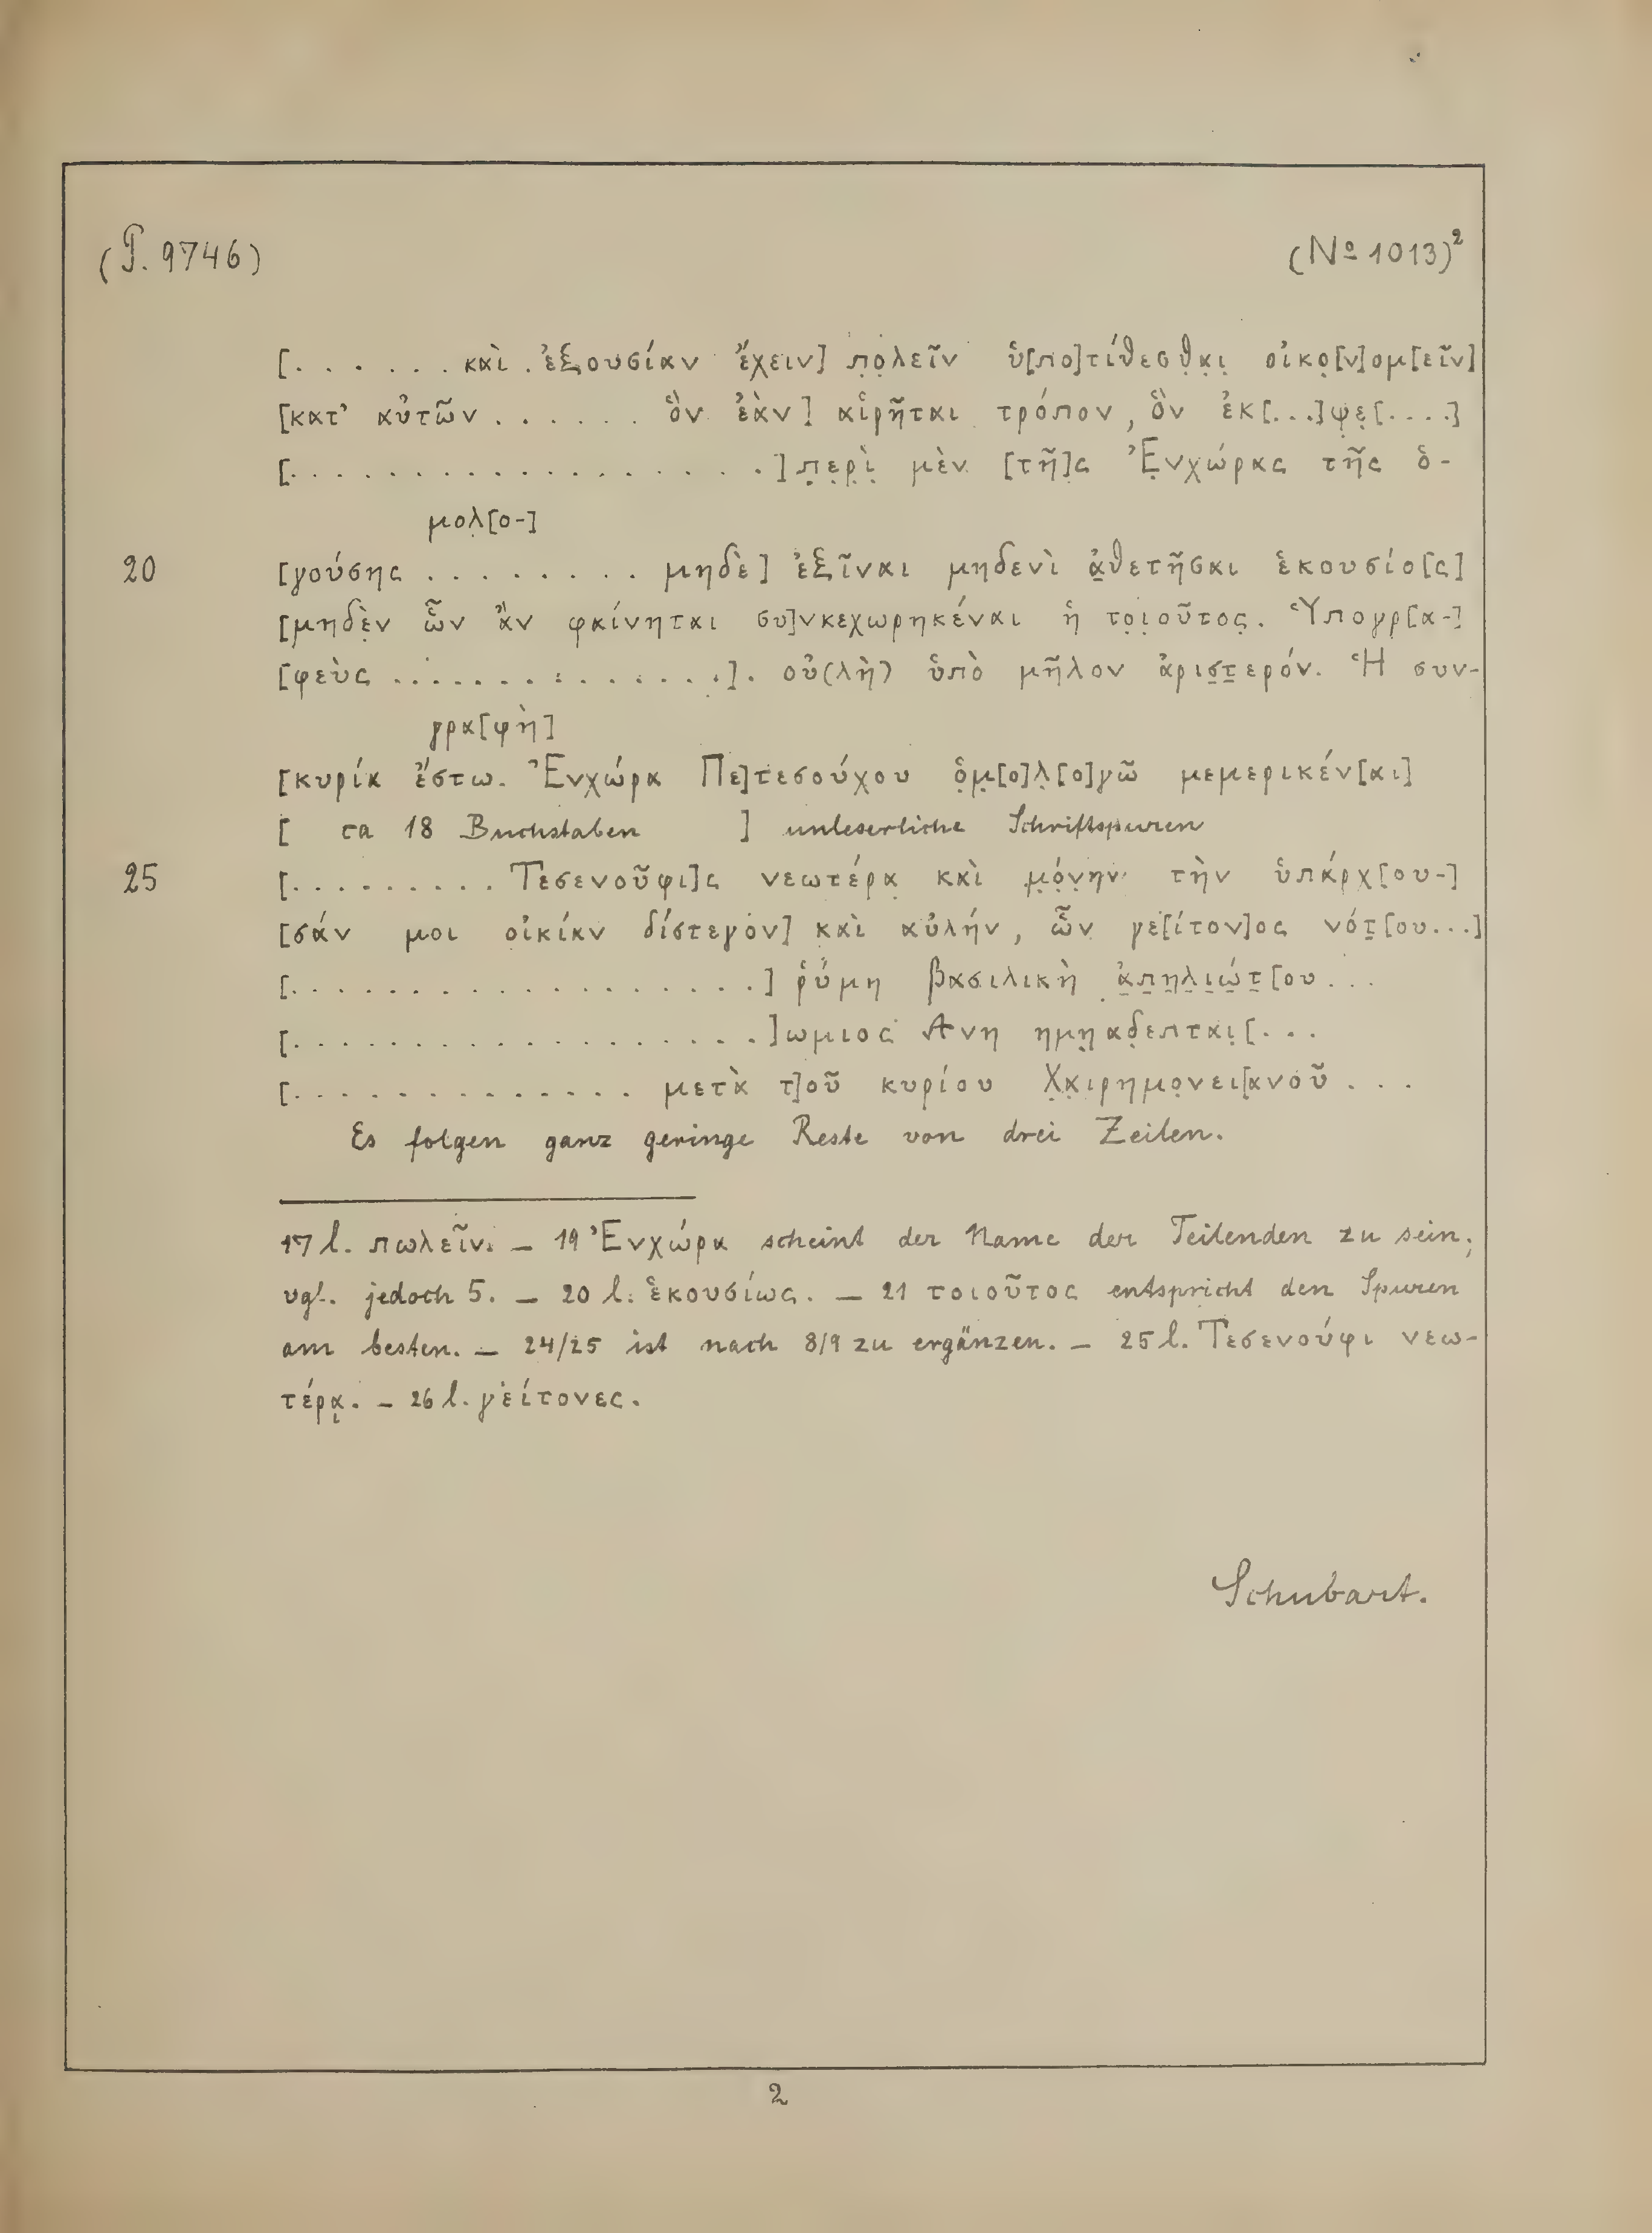 (P. 9746) (Nº 1013)²
[. . . . . . καὶ ἐξουσίαν ἔχειν] π̣ο̣λεῖν ὑ[πο]τίθεσθ̣α̣ι̣ οἰκο̣[ν]ομ[εῖν]
[κατ' αὐτῶν . . . . . . ὃν ἐὰν] αἱρῆται τρόπον, ὃν ἐκ[...]ψ̣ε̣[....]
[. . . . . . . . . . . . . . . . . . .] π̣ε̣ρ̣ὶ̣ μὲν [τῆ]ς̣ Ἐ̣νχώρας τῆς ὁ-
μολ̣[ο-]
20 [γούσης . . . . . . . . . μηδὲ] ἐξῖναι μηδενὶ ἀ̣θετῆσαι ἑκουσίο[ς]
[μηδὲν ὧν ἂν φαίνηται συ]νκεχωρηκέναι ἡ τ̣ο̣ι̣οῦτος̣. Ὑπογρ[α-]
[φεὺς . . . . . . . . . . . . . . .]. οὐ(λὴ) ὑπὸ μῆλον ἀρισ̣τ̣ερόν. Ἡ συν-
γρα[φὴ]
[κυρία ἔστω. Ἐνχώρα Πε]τεσούχου ὁ̣μ̣[ο]λ̣[ο]γῶ μεμερικέν[αι]
[ ca 18 Buchstaben ] unleserliche Schriftspuren
25 [. . . . . . . . . Τεσενοῦφι]ς νεωτέρα̣ καὶ μ̣ό̣ν̣ην̣ τὴν ὑπάρχ[ου-]
[σάν μοι οἰκίαν δίστεγον] καὶ αὐλήν, ὧν γε[ίτον]ος νότ̣[ου...]
[. . . . . . . . . . . . . . . . . .] ῥύμη βασιλικὴ ἀ̣π̣η̣λ̣ι̣ώ̣τ̣[ου . . .
[. . . . . . . . . . . . . . . . . .]ωμιος Ανη ημη̣αδ̣επται̣[. . .
[. . . . . . . . . . . . . μετὰ τ]οῦ κυρίου Χ̣α̣ιρημο̣νει[ανοῦ . . .
Es folgen ganz geringe Reste von drei Zeilen.
17 l. πωλεῖν. — 19 Ἐνχώρα scheint der Name der Teilenden zu sein;
vgl. jedoch 5. — 20 l. ἑκουσίως. — 21 τοιοῦτος entspricht den Spuren
am besten. — 24/25 ist nach 8/9 zu ergänzen. — 25 l. Τεσενούφι νεω-
τέρᾳ. — 26 l. γείτονες.
Schubart.
2